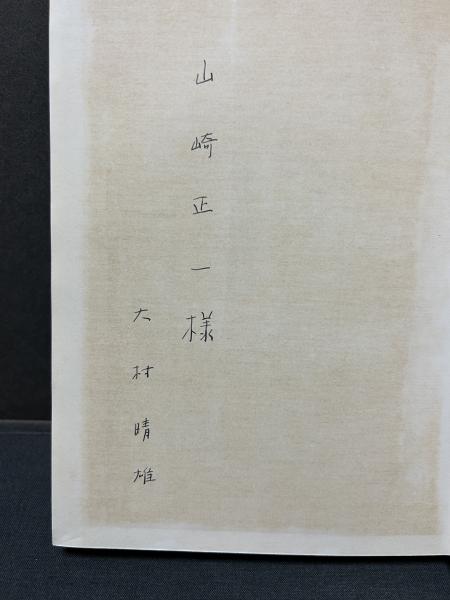 山崎正一様
大村晴雄